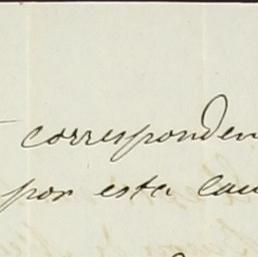 corresponden
por esta cau